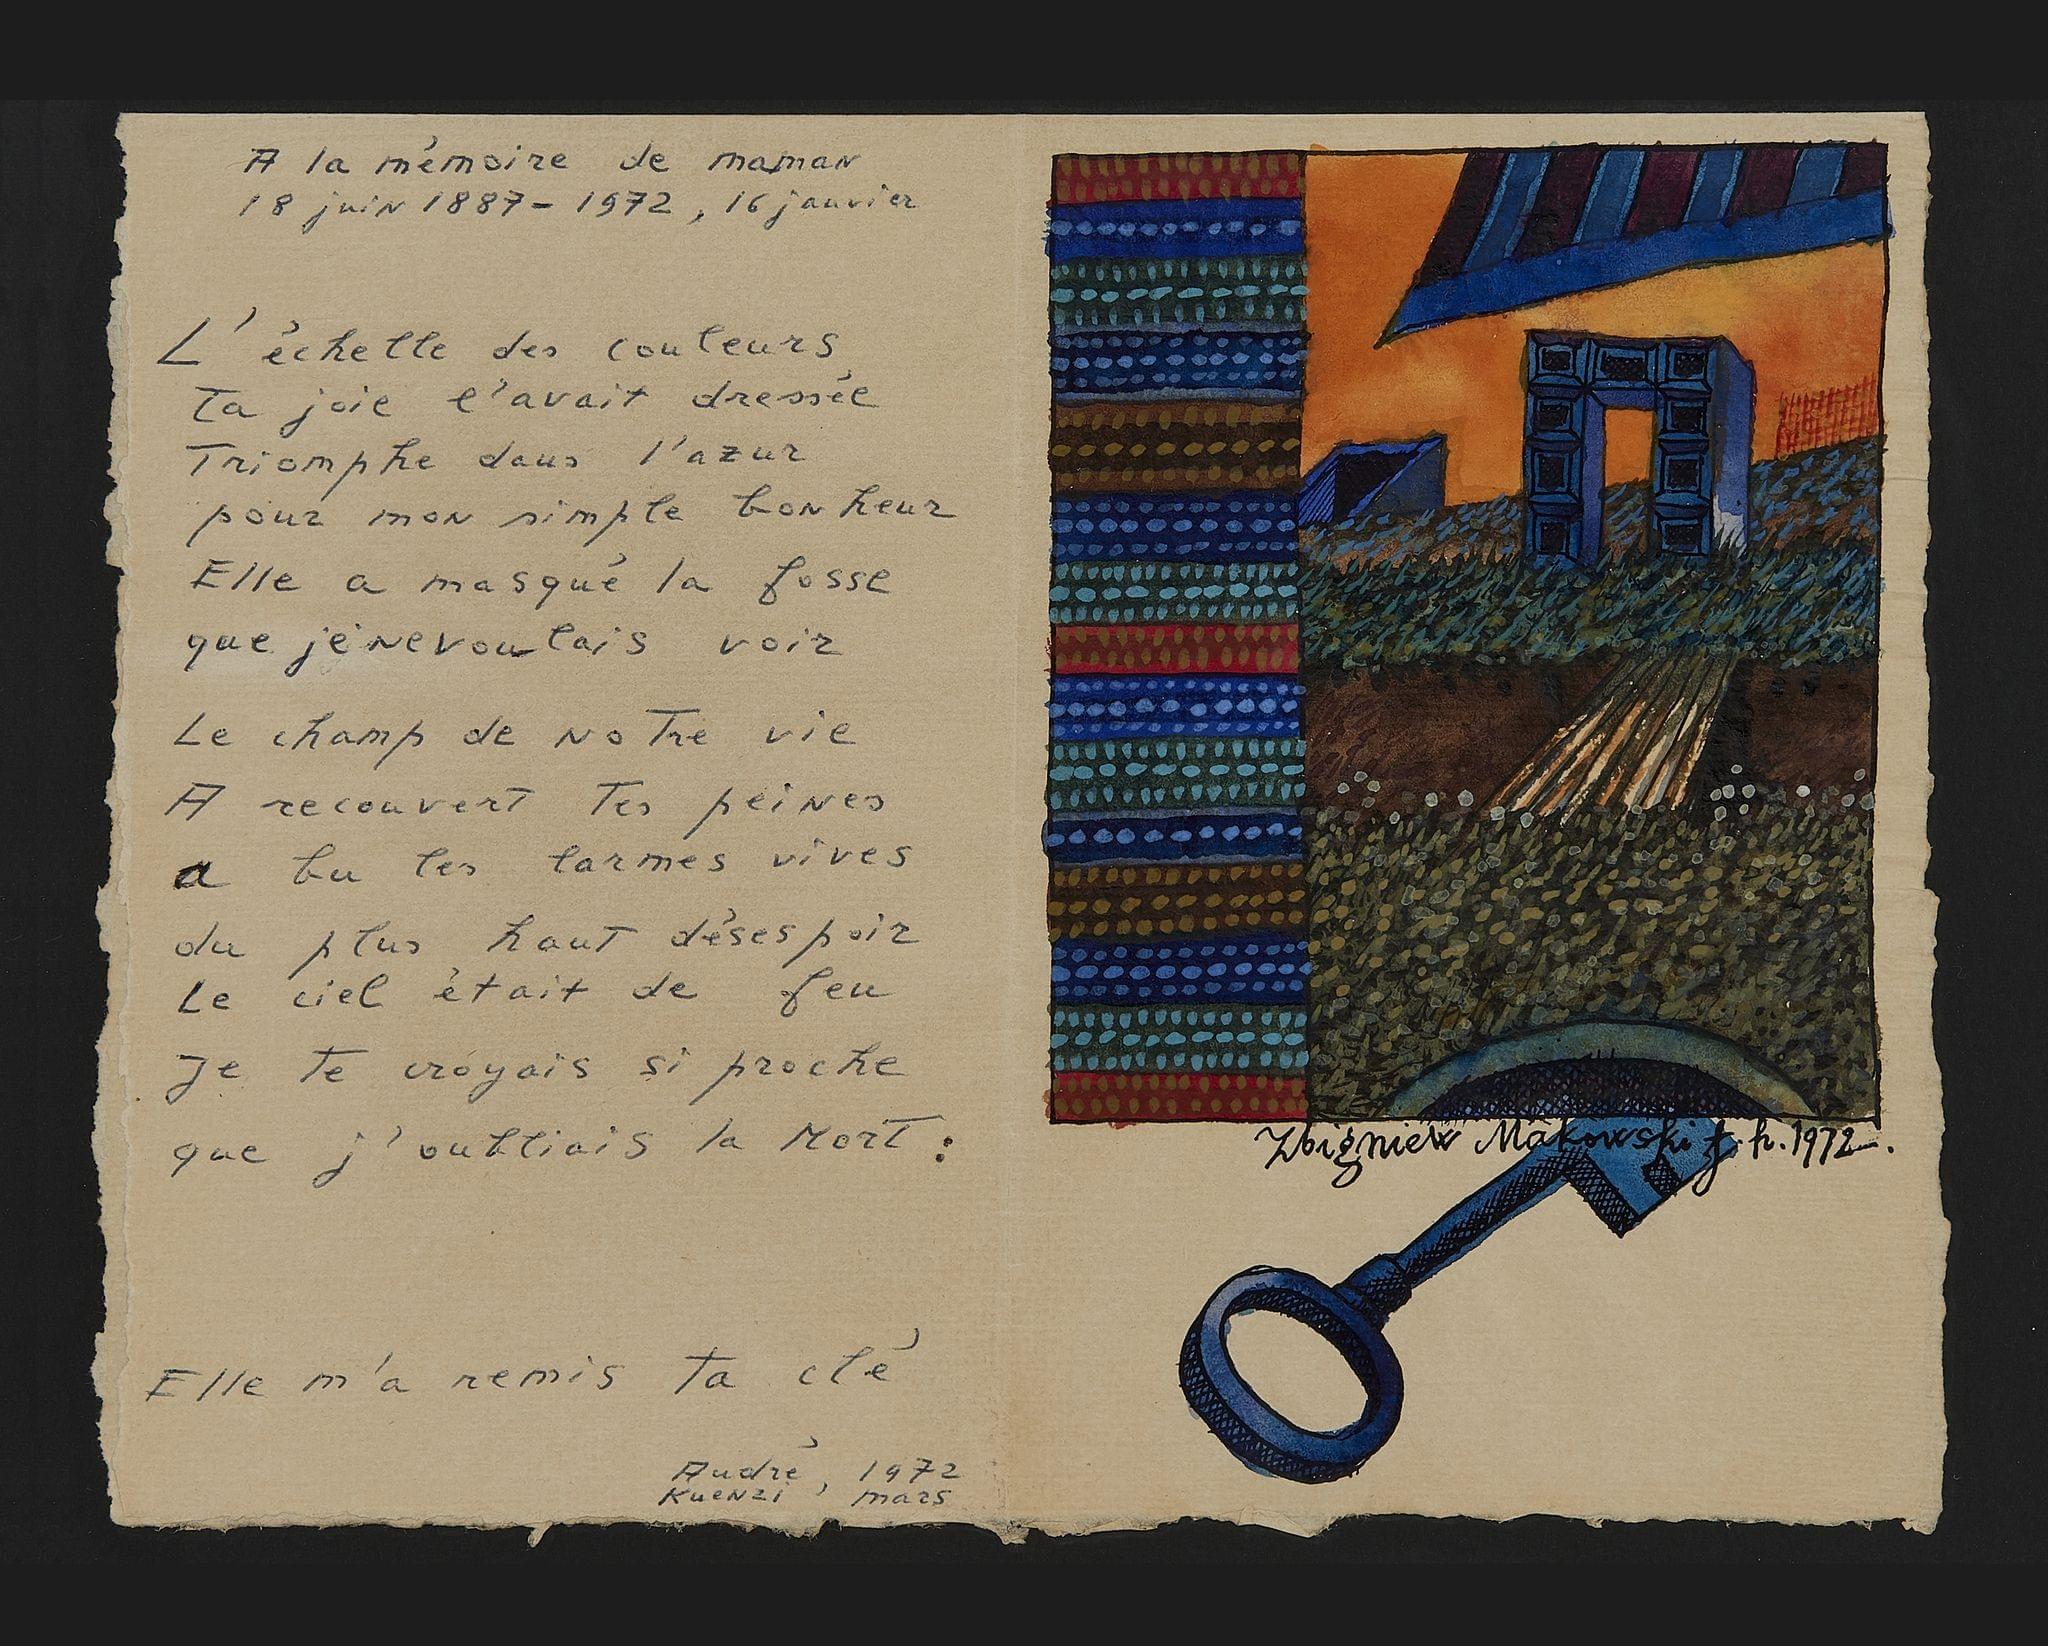 A la mémoire de maman
18 juin 1887 - 1972, 16 janvier
L'échelle des couleurs
Ta joie l'avait dressée
Triomphe dans l'azur
pour mon simple bonheur
Elle a masqué la fosse
que je ne voulais voir
Le champ de notre vie
A recouvert tes peines
a bu les larmes vives
du plus haut désespoir
Le ciel était de feu
Je te croyais si proche
que j'oubliais la Mort :
Elle m'a remis ta clé
André, 1972
Kuenzi, mars
Zbigniew Makowski f. h. 1972 —.